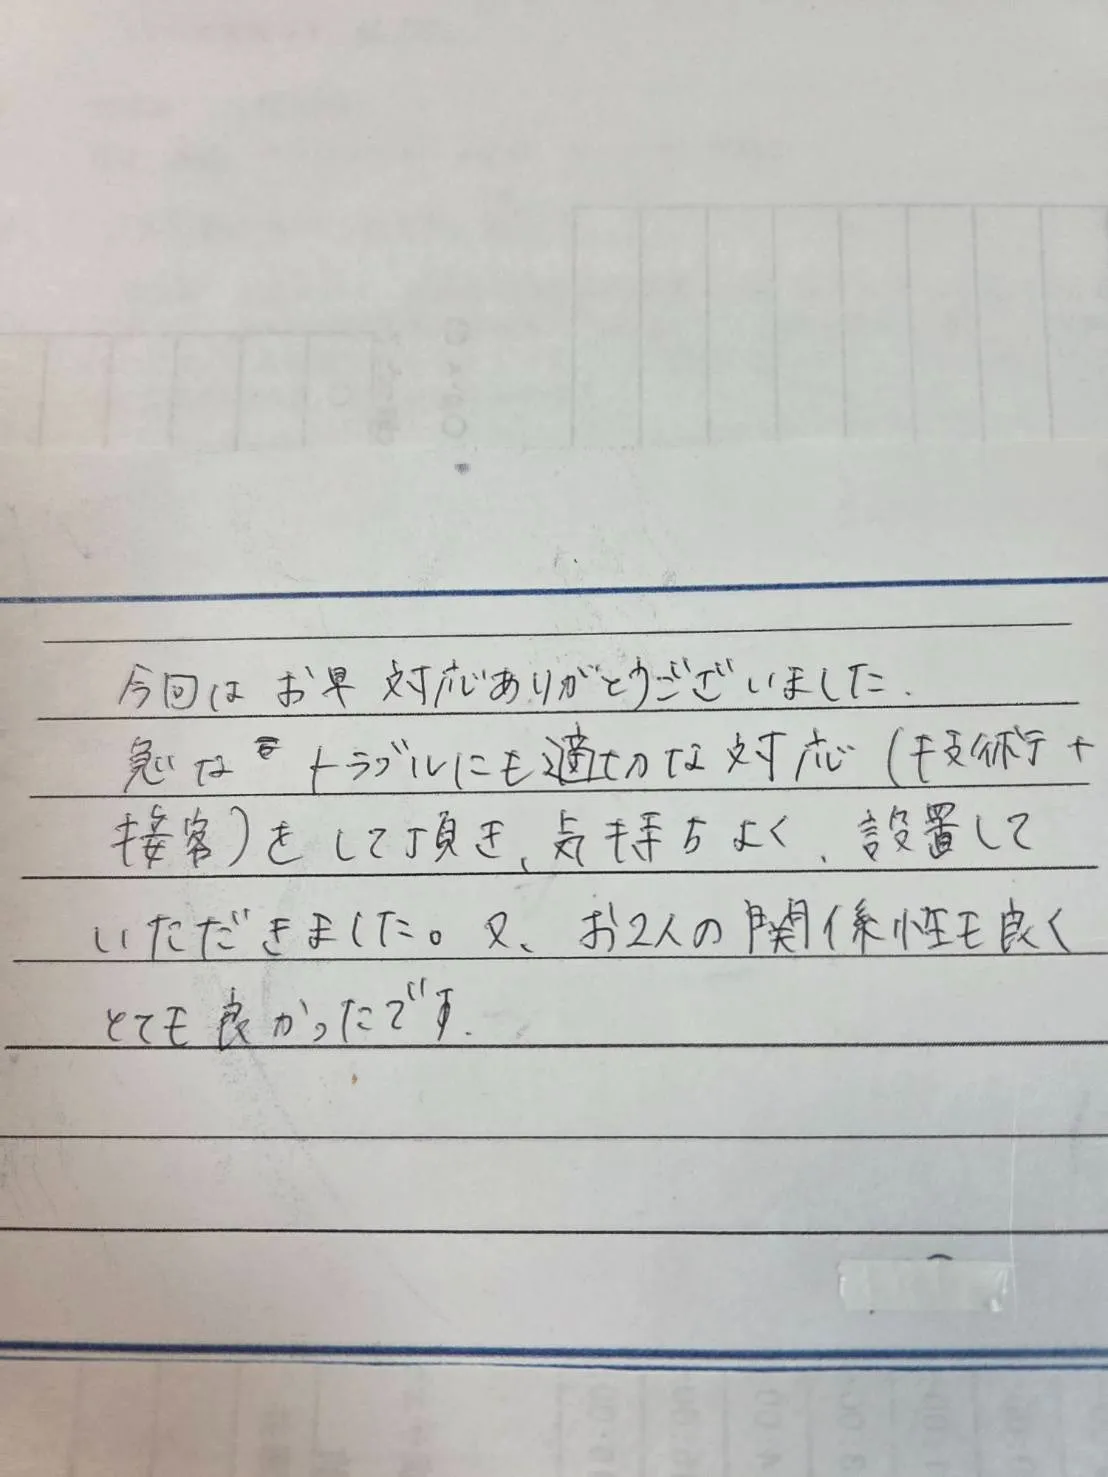 今回はお早対応ありがとうございました.
急なトラブルにも適切な対応(技術+
接客)をして頂き、気持ちよく、設置して
いただきました。又、お2人の関係性も良く
とても良かったです.